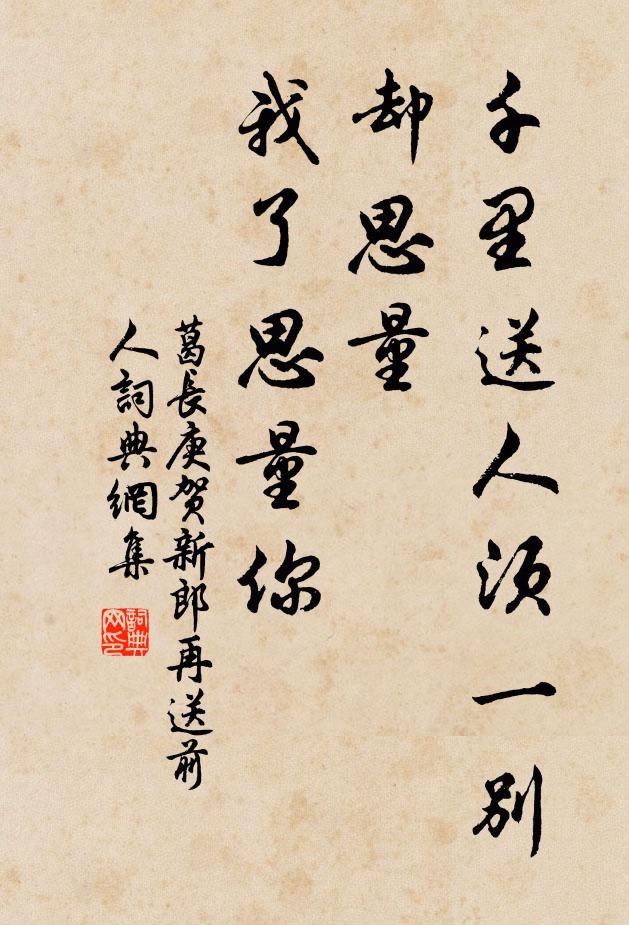 千里送人须一别
却思量
我了思量你
葛長庚贺新郎再送前
人詞典網集
詞典
网印